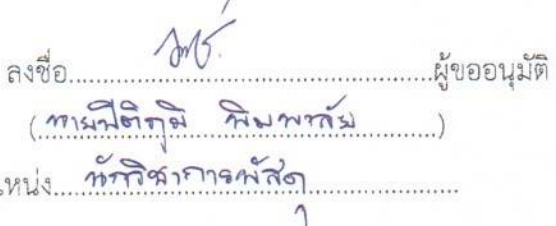 ลงชื่อ..........ผู้ขออนุมัติ
(นายปิติภูมิ พิมพาภัย)
แหน่ง นักวิชาการพัสดุ